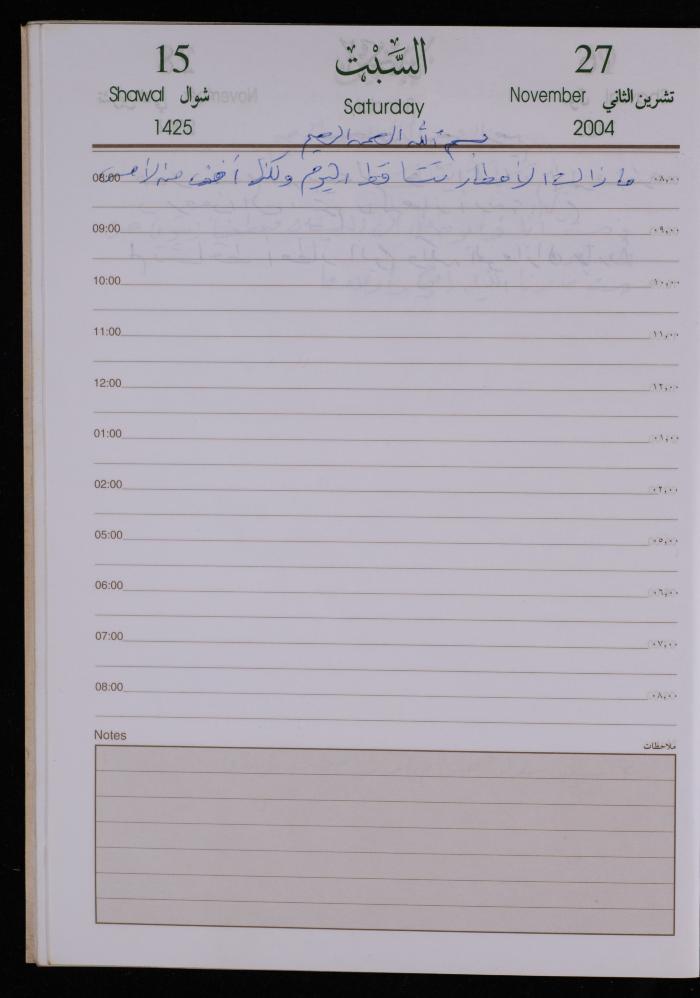 15 السَّبْت 27
Shawal شوال Saturday November تشرين الثاني
1425 2004
بسم الله الرحمن الرحيم
ما زالت الأمطار تتساقط اليوم ولكن أخف من الأمس
08:00 ٠٨,٠٠
09:00 ٠٩,٠٠
10:00 ١٠,٠٠
11:00 ١١,٠٠
12:00 ١٢,٠٠
01:00 ٠١,٠٠
02:00 ٠٢,٠٠
05:00 ٠٥,٠٠
06:00 ٠٦,٠٠
07:00 ٠٧,٠٠
08:00 ٠٨,٠٠
Notes ملاحظات